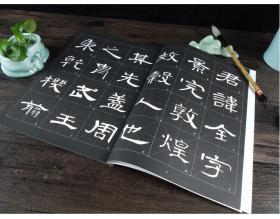 君諱全字
景完敦煌
效穀人也
其先蓋周
之冑武王
秉乾機翦